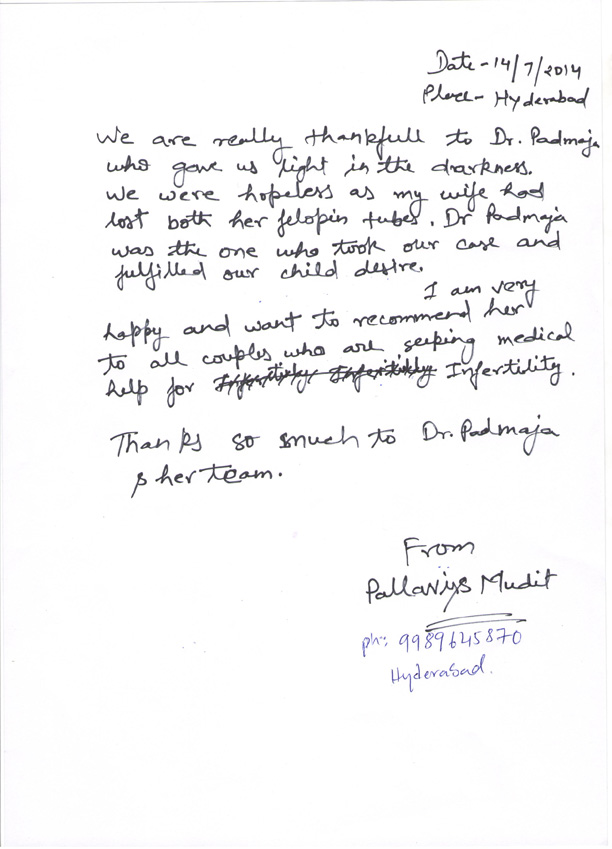 Date - 14/7/2014
Place - Hyderabad
We are really thankfull to Dr. Padmaja
who gave us light in the darkness.
We were hopeless as my wife had
lost both her felopin tubes. Dr Padmaja
was the one who took our case and
fulfilled our child desire.
I am very
happy and want to recommend her
to all couples who are seeking medical
help for Infertility.
Thanks so much to Dr. Padmaja
& her team.
From
Mudit
ph: 9989645870
Hyderabad.